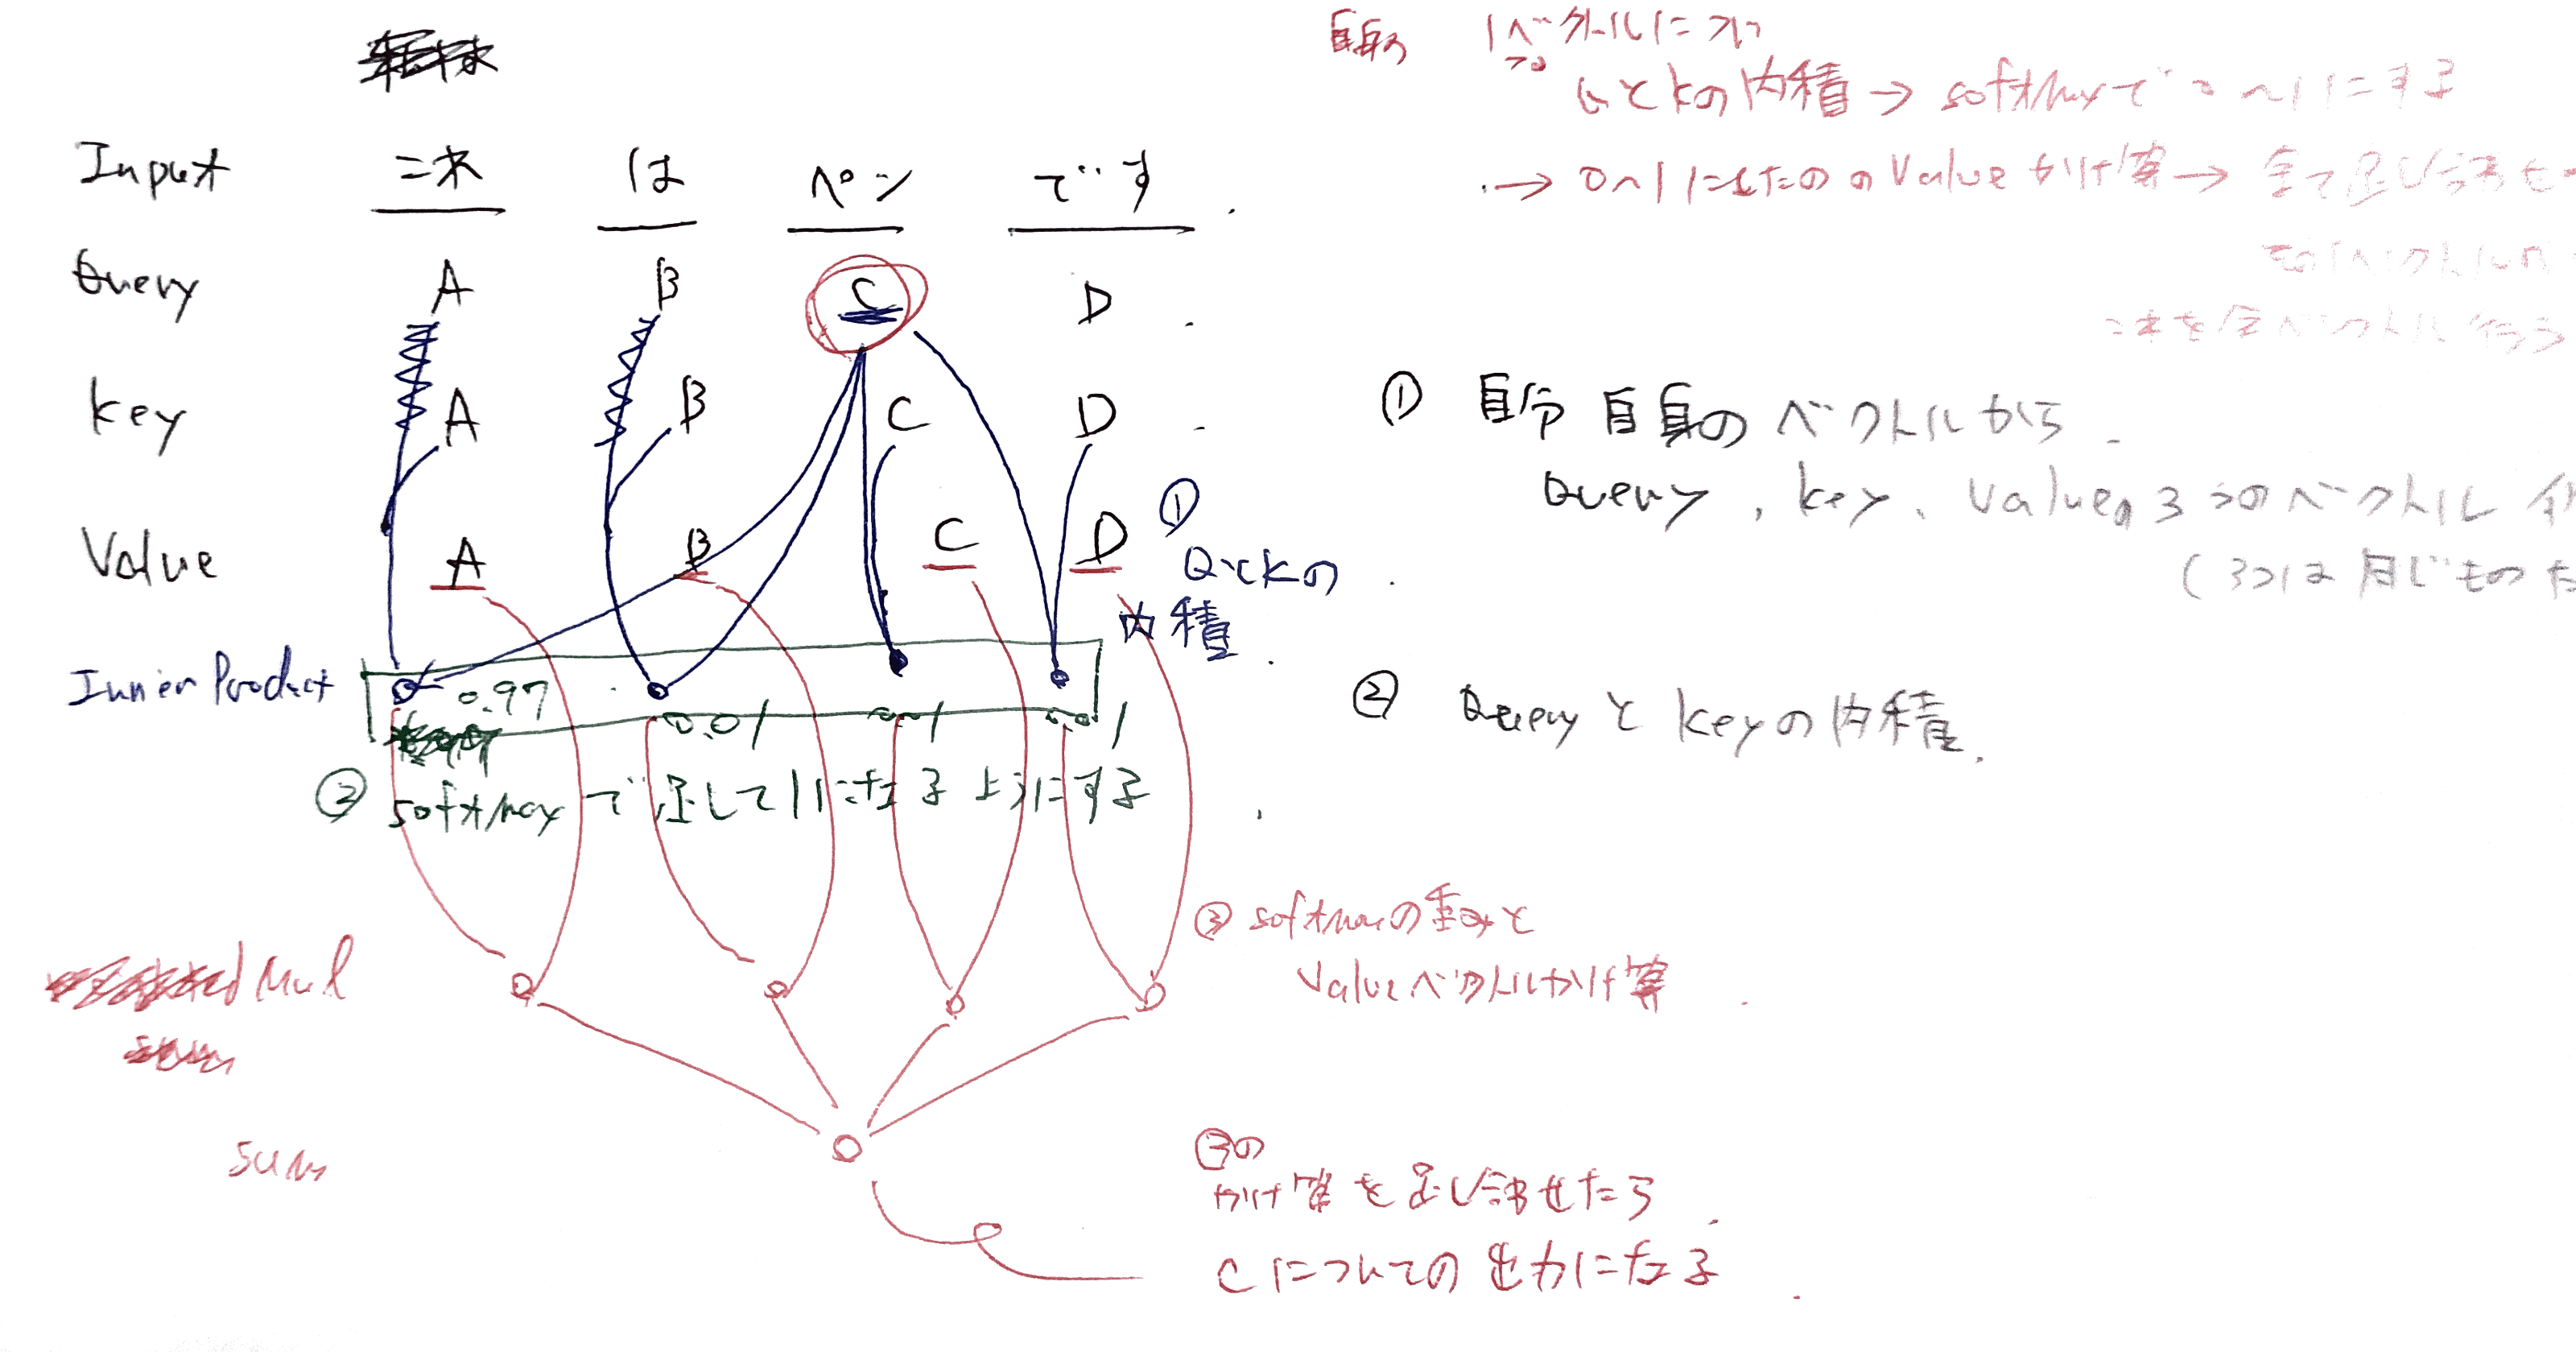 Input これ は ペン です
Query A B C D
key A B C D
Value A B C D
① QとKの
内積
Inner Product 0.97 0.01 0.01 0.01
② softmaxで足して1になるようにする
Mul
sum
③ softmaxの重みと
Valueベクトルかけ算
③の
かけ算を足し合わせたら
Cについての出力になる
自身の 1ベクトルにつき
QとKの内積→softmaxで0〜1にする
→ 0〜1にしたののValueかけ算→全て足し合わせ
その1ベクトルの
これを全ベクトル行う
① 自分自身のベクトルから
Query, key, Valueの3つのベクトル
(3つは同じものだ
② Queryとkeyの内積